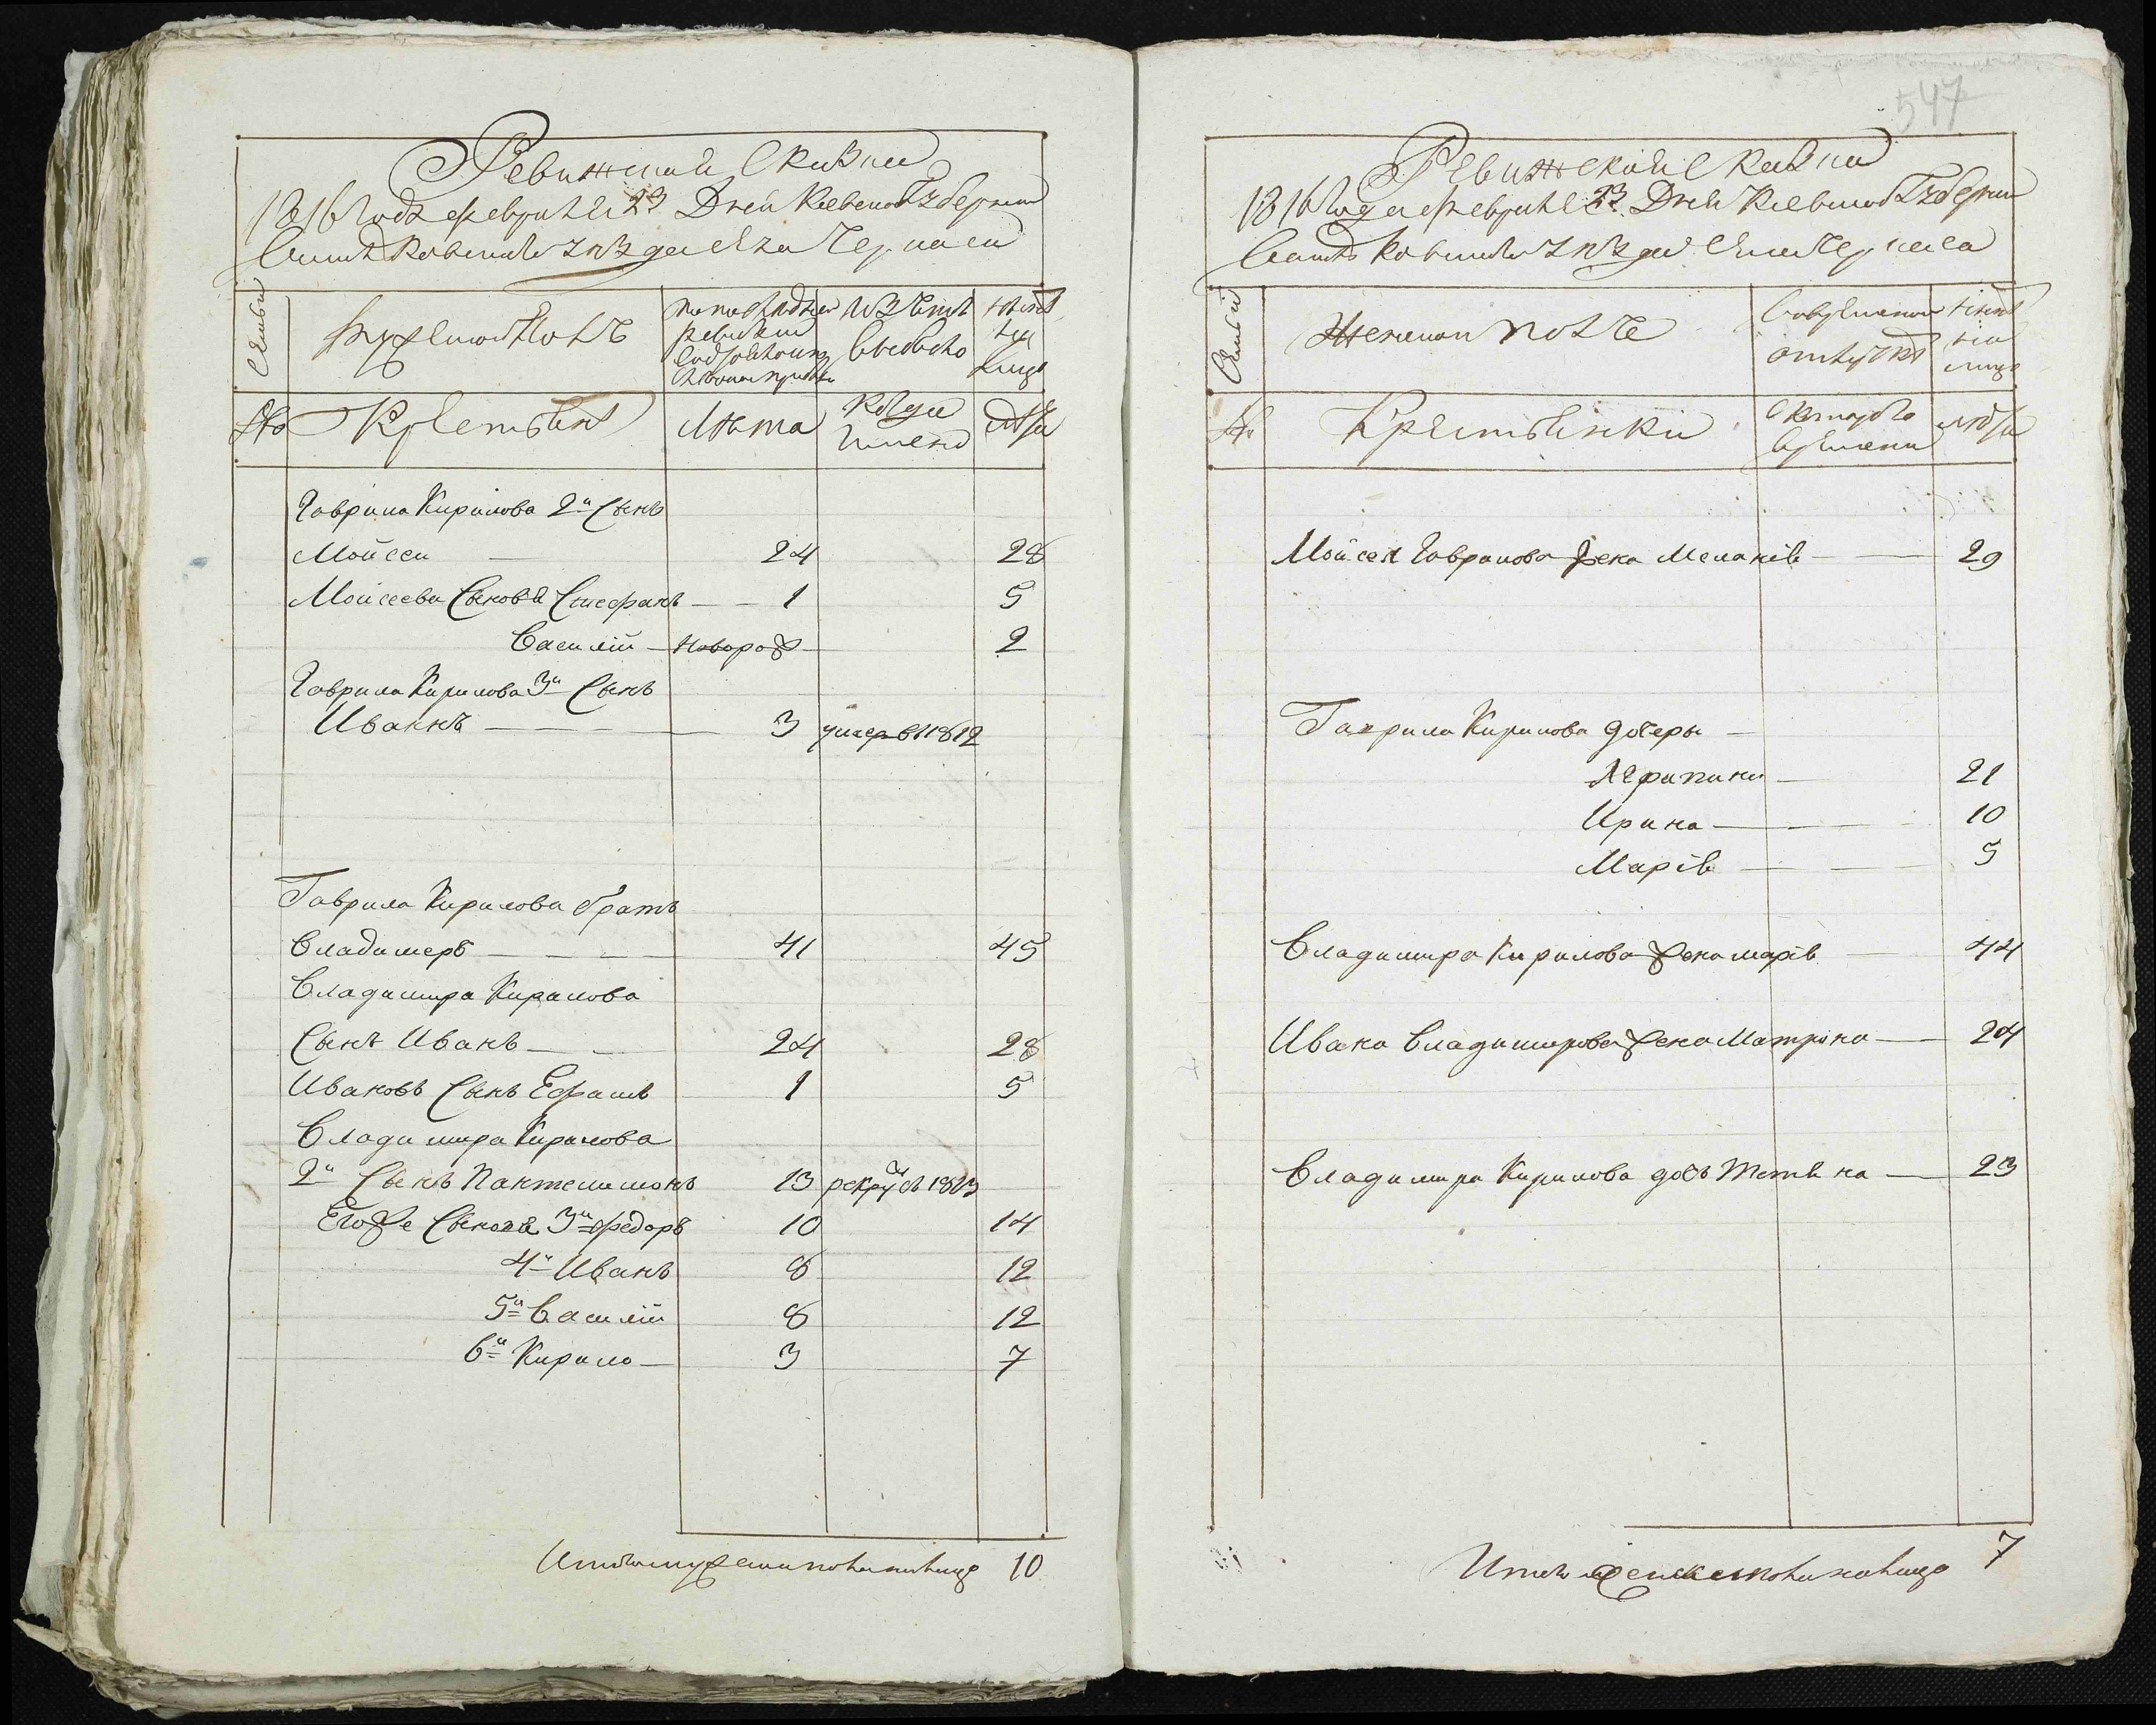 Ревижскай Скаски
1816 Года февраля 23 Дня Киевской Губернии
уезда села Черкаса
Семьи
Мужеской полъ
ревизии
изъ того числа
ныне на лицо
№
Крестьяне
Лета
Когда имено
Лета
Гаврила Кирилова 2й Сынъ
Мойсеи 24 28
Моисеева Сыновья Стефанъ 1 5
Василій новорож 2
Гаврила Кирилова 3й Сынъ
Иваннъ 3 умеръ в 1812
Гаврила Кирилова братъ
Владимеръ 41 45
Владимира Кирилова
Сынъ Иванъ 24 28
Ивановъ Сынъ Ефимъ 1 5
Владимира Кирилова
2й Сынъ Пантелимонъ 13 рекру въ 1813
Егоже Сыновья 3й Федоръ 10 14
4й Иванъ 8 12
5й Василій 8 12
6й Кирило 3 7
Итого мужеска пола на лицо 10
547
Ревижской Скаски
1816 Года февраля 23 Дня Киевской Губернии
уезда села Черкаса
Семьи
Женскои полъ
Во временной отлучке
ныне на лице
№
Крестьянки
С котораго времени
лета
Мойсея Гаврилова жена Меланія 29
Гаврила Кирилова дочеры
Агрипина 21
Ирина 10
Марія 5
Владимира Кирилова жена марія 44
Ивана Владимирова жена Матрона 24
Владимира Кирилова дочь Тетяна 23
Итого женска пола на лицо 7